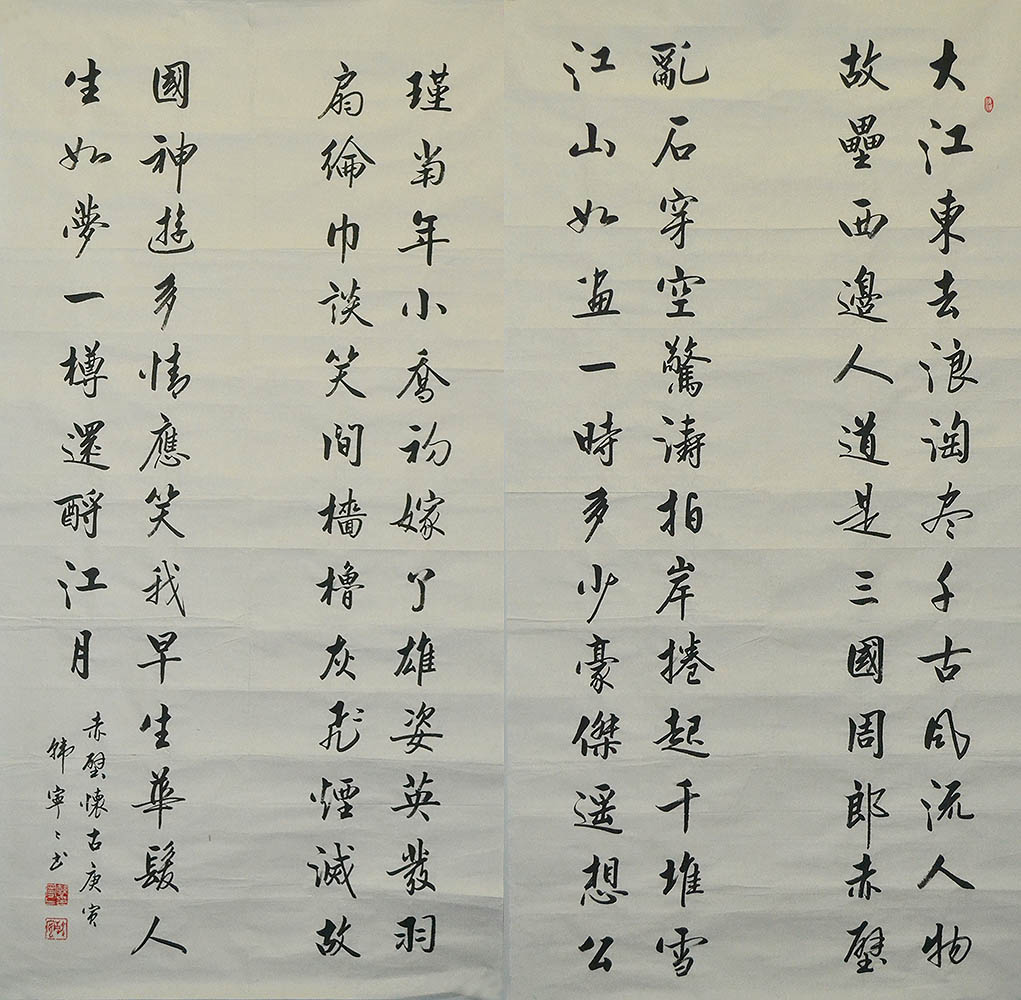 大江東去浪淘尽千古风流人物
故壘西邊人道是三國周郎赤壁
亂石穿空驚濤拍岸捲起千堆雪
江山如畫一時多少豪傑遥想公
瑾當年小喬初嫁了雄姿英發羽
扇綸巾談笑間檣櫓灰飛煙滅故
國神遊多情應笑我早生華髮人
生如夢一樽還酹江月
赤壁懷古庚寅
韩寧〻书